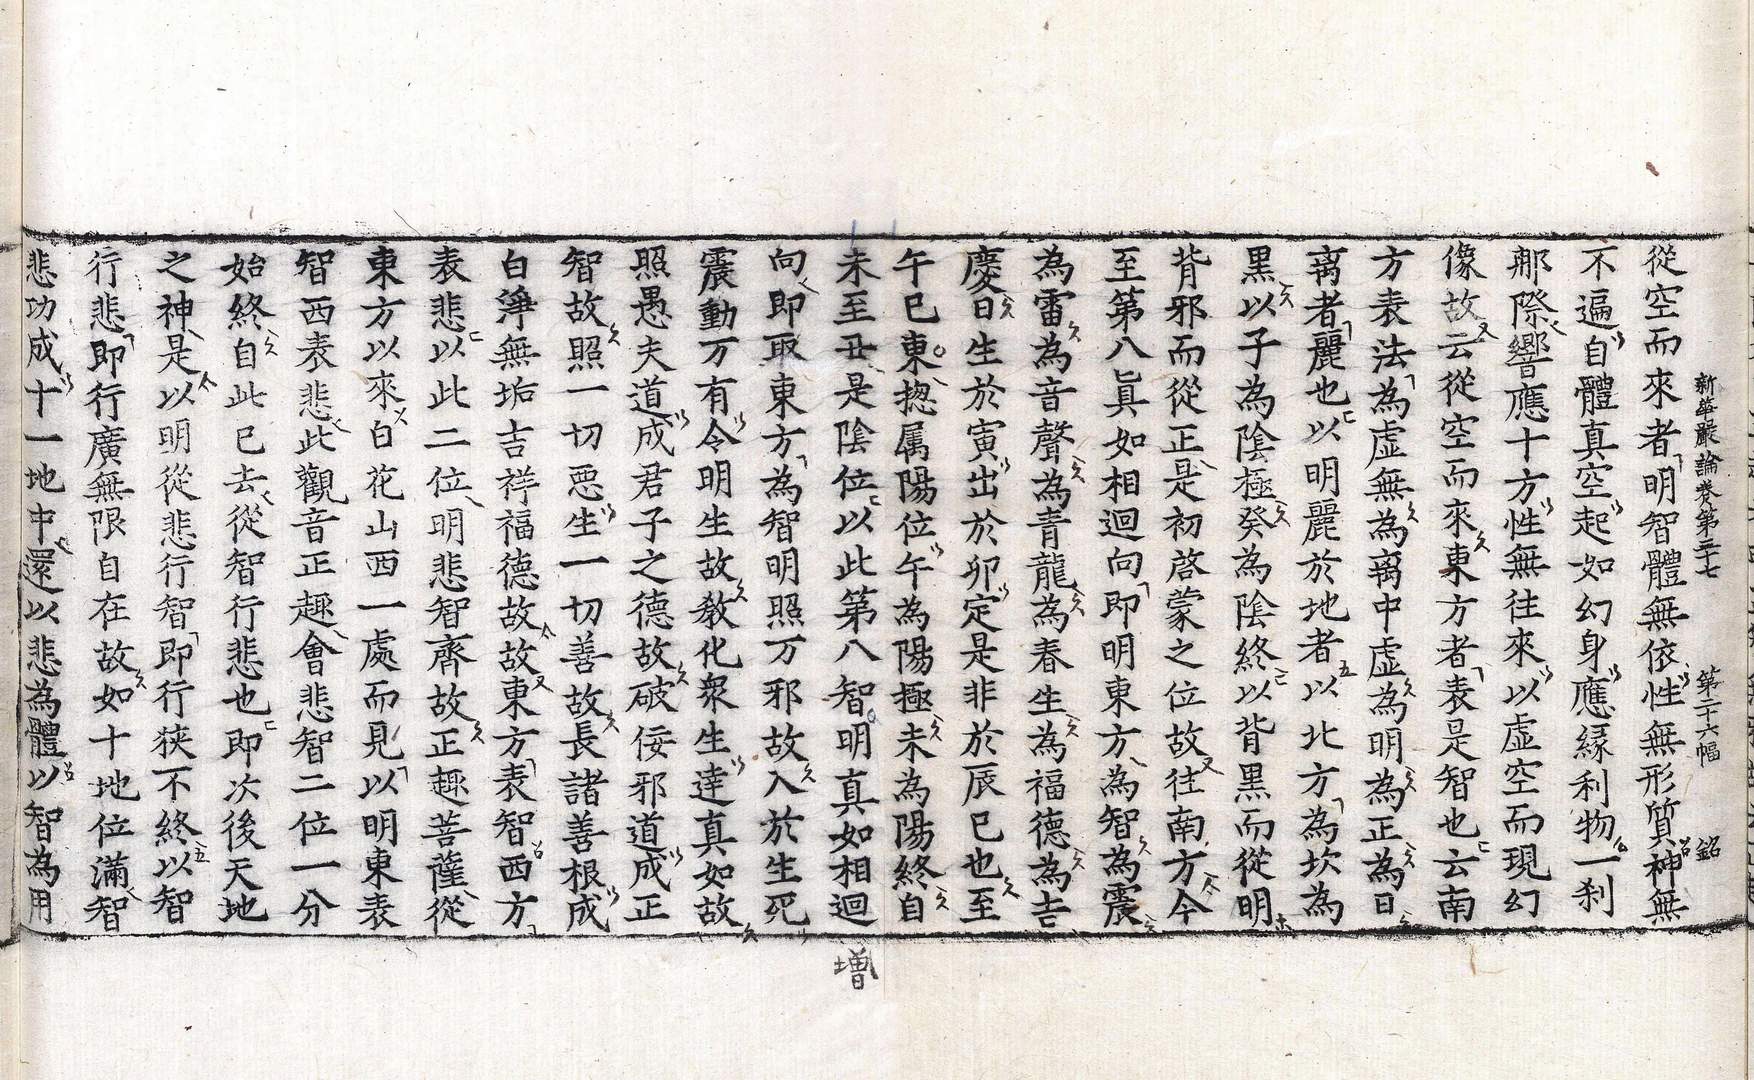 新華嚴論卷第三十七　第二十六幅　銘
從空而來者明智體無依性無形質神無
不遍自體真空起如幻身應緣利物一剎
那際響應十方性無往來以虛空而現幻
像故云從空而來東方者表是智也云南
方表法為虛無為离中虛為明為正為日
离者麗也以明麗於地者以北方為坎為
黑以子為陰極癸為陰終以背黑而從明
背邪而從正是初啓蒙之位故往南方今
至第八真如相迴向即明東方為智為震
為雷為音聲為青龍為春生為福德為吉
慶日生於寅出於卯定是非於辰巳也至
午巳東揔属陽位午為陽極未為陽終自
未至丑是陰位以此第八智明真如相迴
向即取東方為智明照万邪故入於生死
震動万有令明生故教化衆生達真如故
照愚夫道成君子之德故破佞邪道成正
智故照一切惡生一切善故長諸善根成
白淨無垢吉祥福德故故東方表智西方
表悲以此二位明悲智齊故正趣菩薩從
東方以來白花山西一處而見以明東表
智西表悲此觀音正趣會悲智二位一分
始終自此已去從智行悲也即次後天地
之神是以明從悲行智即行狹不終以智
行悲即行廣無限自在故如十地位滿智
悲功成十一地中還以悲為體以智為用
増